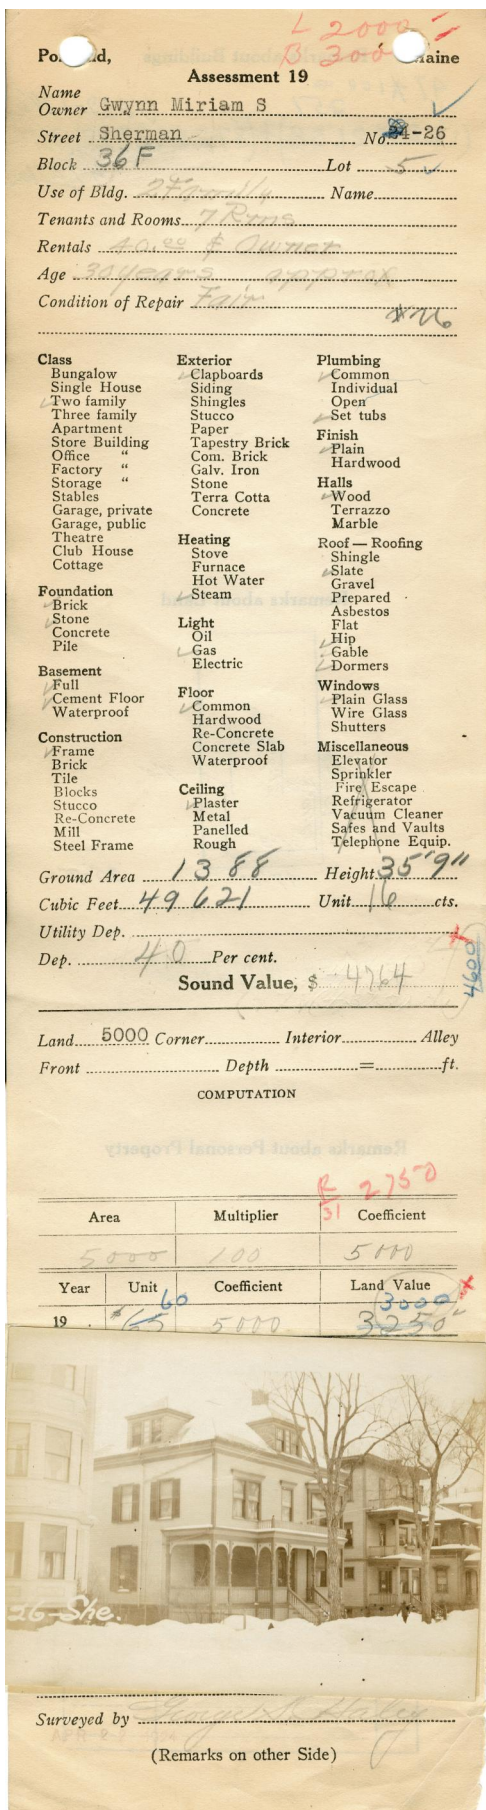 L 2000-
B 300
Po      d,      aine
Assessment 19
Name
Owner Gwynn Miriam S
Street Sherman No. 24-26
Block 36 F Lot 5
Use of Bldg. 2 Family Name
Tenants and Rooms 7 Rms
Rentals 40.00 & Owner
Age 30 years approx
Condition of Repair Fair
Class
Bungalow
Single House
Two family
Three family
Apartment
Store Building
Office "
Factory "
Storage "
Stables
Garage, private
Garage, public
Theatre
Club House
Cottage
Foundation
Brick
Stone
Concrete
Pile
Basement
Full
Cement Floor
Waterproof
Construction
Frame
Brick
Tile
Blocks
Stucco
Re-Concrete
Mill
Steel Frame
Exterior
Clapboards
Siding
Shingles
Stucco
Paper
Tapestry Brick
Com. Brick
Galv. Iron
Stone
Terra Cotta
Concrete
Heating
Stove
Furnace
Hot Water
Steam
Light
Oil
Gas
Electric
Floor
Common
Hardwood
Re-Concrete
Concrete Slab
Waterproof
Ceiling
Plaster
Metal
Panelled
Rough
Plumbing
Common
Individual
Open
Set tubs
Finish
Plain
Hardwood
Halls
Wood
Terrazzo
Marble
Roof — Roofing
Shingle
Slate
Gravel
Prepared
Asbestos
Flat
Hip
Gable
Dormers
Windows
Plain Glass
Wire Glass
Shutters
Miscellaneous
Elevator
Sprinkler
Fire Escape
Refrigerator
Vacuum Cleaner
Safes and Vaults
Telephone Equip.
Ground Area 1388 Height 35'9"
Cubic Feet 49621 Unit 16 cts.
Utility Dep.
Dep. 40 Per cent.
4600
Sound Value, $ 4764
Land 5000 Corner Interior Alley
Front Depth = ft.
COMPUTATION
Remarks about Personal Property
R 2750
31
Area Multiplier Coefficient
5000 100 5000
Year Unit Coefficient Land Value
60 3000
19 $65 5000 3250
26-She.
Surveyed by
(Remarks on other Side)